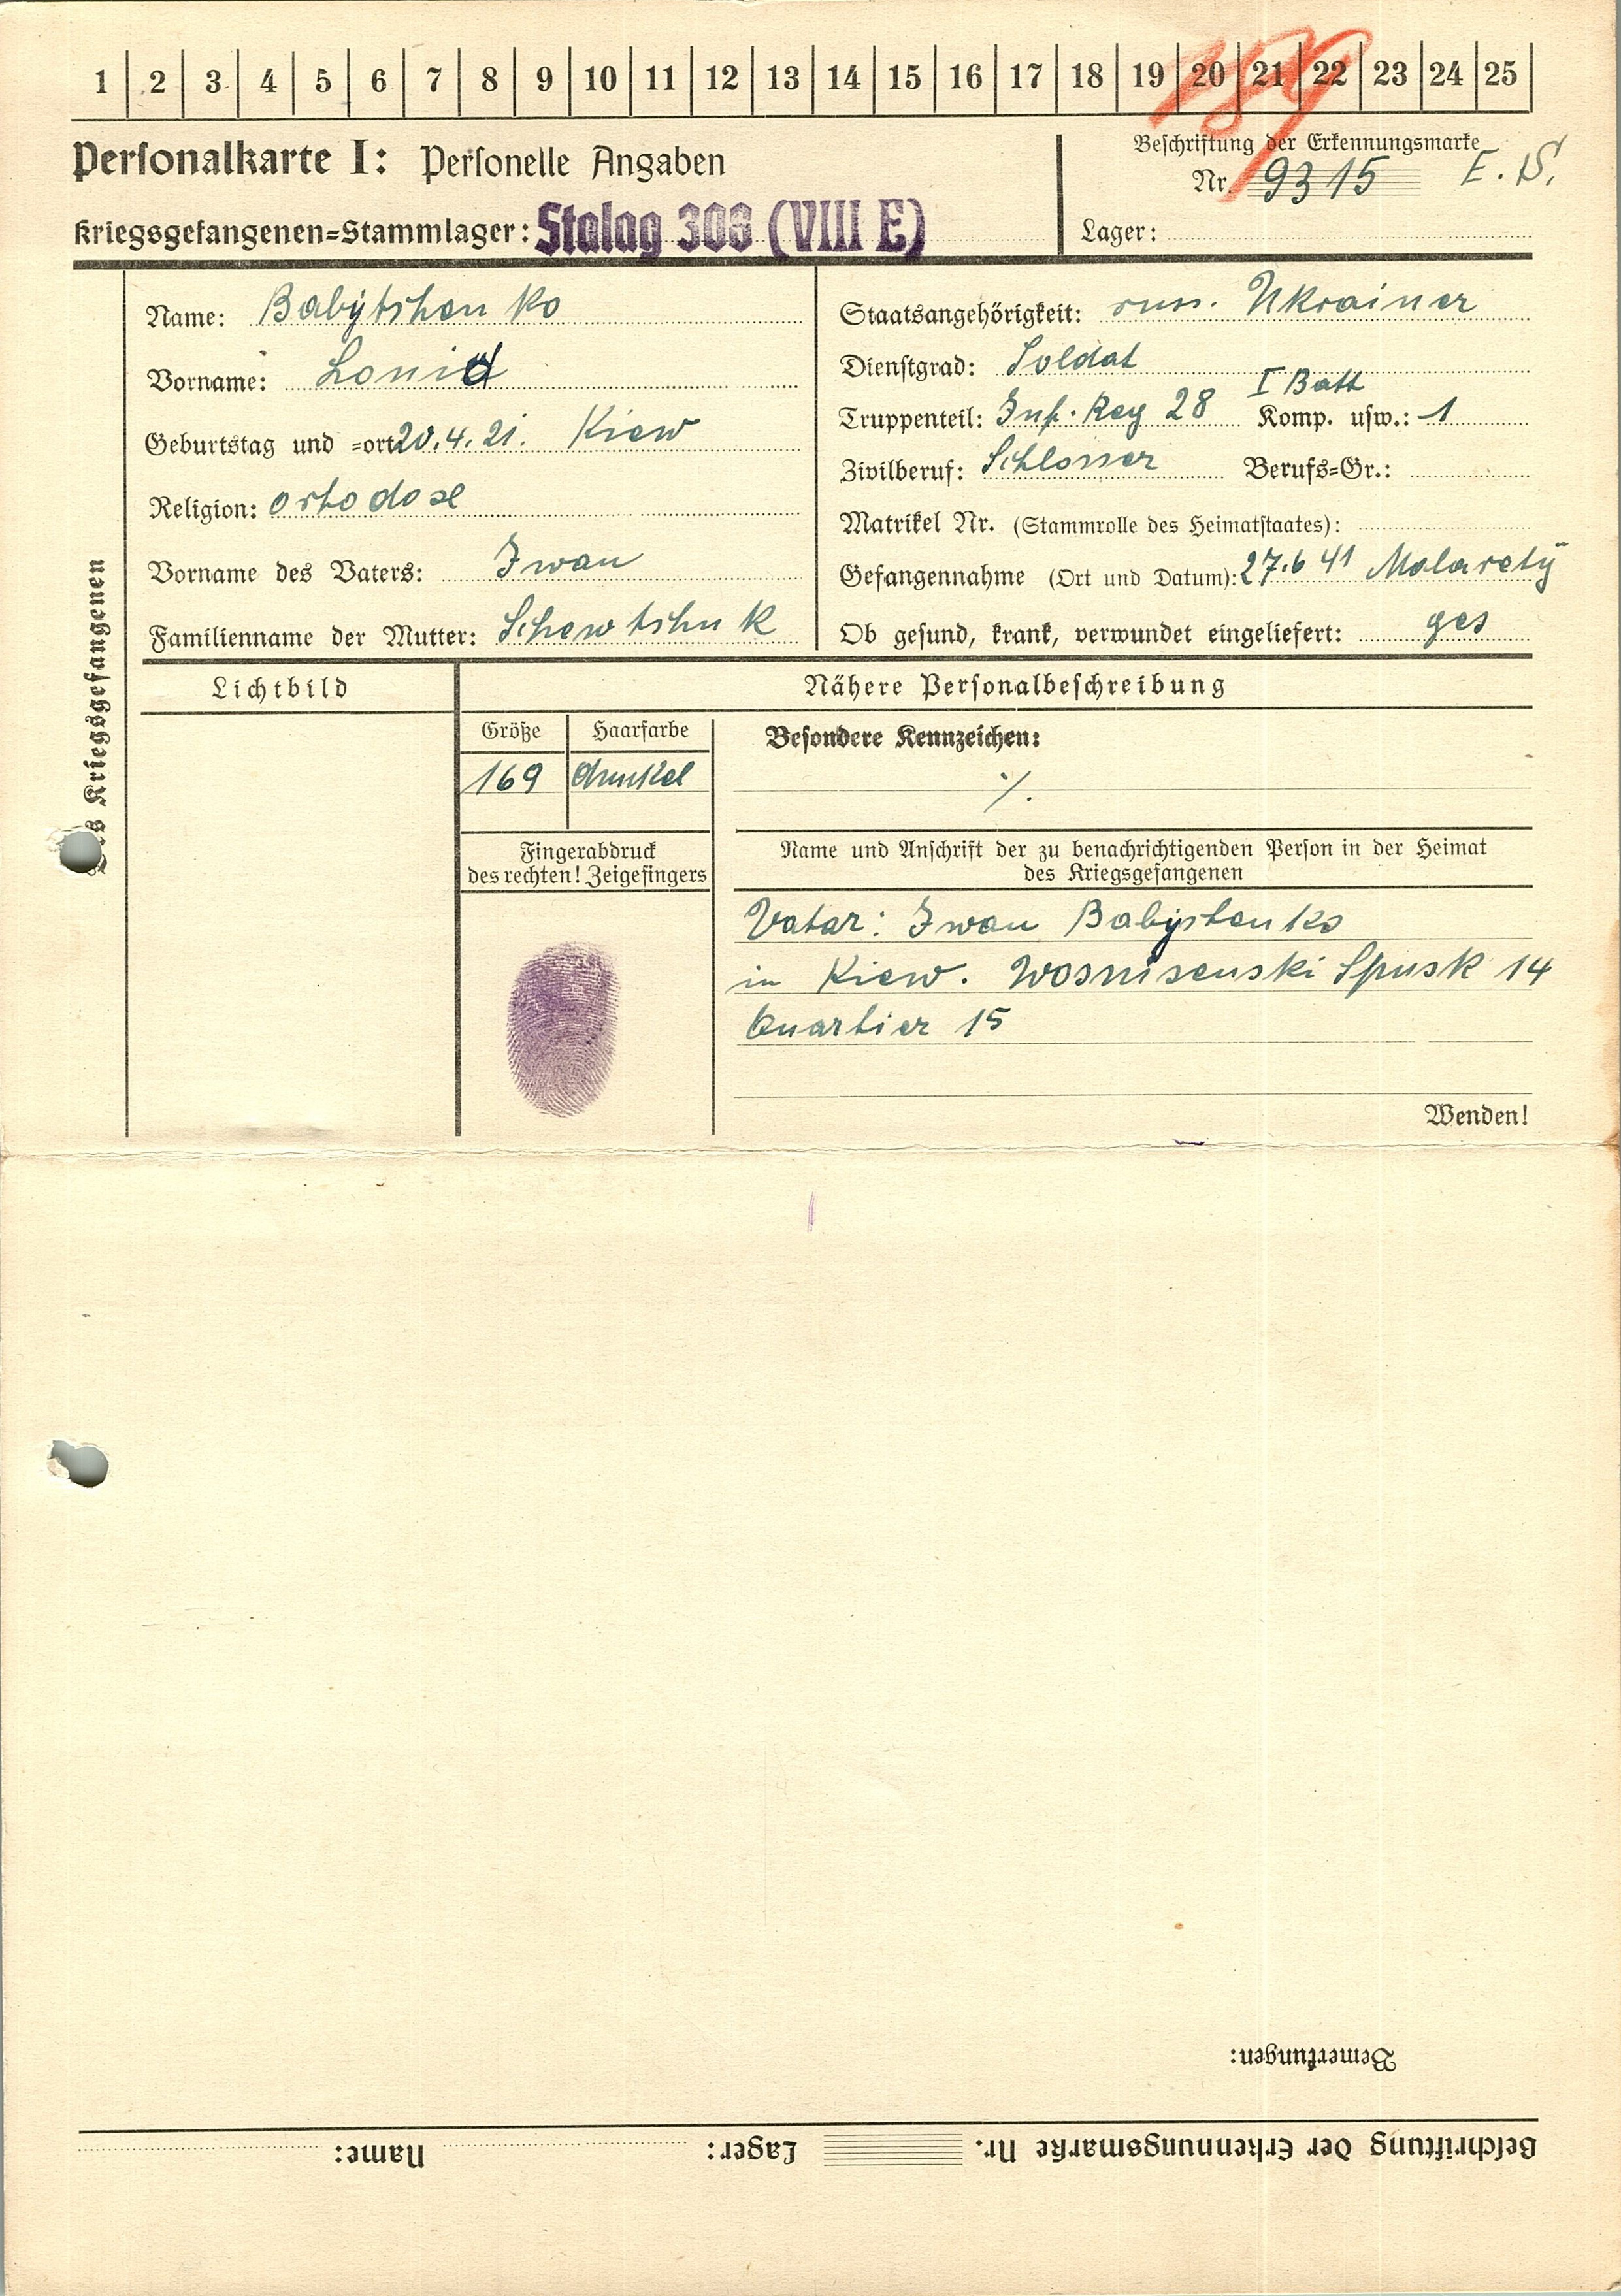 1 2 3 4 5 6 7 8 9 10 11 12 13 14 15 16 17 18 19 20 21 22 23 24 25
Personalkarte I: Personelle Angaben
Kriegsgefangenen=Stammlager: Stalag 308 (VIII E)
Beschriftung der Erkennungsmarke
Nr. 9315 E. S.
Lager:
des Kriegsgefangenen
Name: Babÿtshenko
Vorname: Lonid
Geburtstag und =ort 20.4.21. Kiew
Religion: ortodox
Vorname des Vaters: Iwan
Familienname der Mutter: Schewtshuk
Staatsangehörigkeit: russ. Ukrainer
Dienstgrad: Soldat
I Batt
Truppenteil: Inf. Reg 28 Komp. usw.: 1
Zivilberuf: Schlosser Berufs=Gr.:
Matrikel Nr. (Stammrolle des Heimatstaates):
Gefangennahme (Ort und Datum): 27.6 41 Molaretÿ
Ob gesund, krank, verwundet eingeliefert: ges
Lichtbild
Nähere Personalbeschreibung
Größe Haarfarbe
169 dunkel
Besondere Kennzeichen:
./.
Fingerabdruck
des rechten! Zeigefingers
Name und Anschrift der zu benachrichtigenden Person in der Heimat
des Kriegsgefangenen
Vater: Iwan Babÿstenko
in Kiew. Wosnisenski Spusk 14
Quartier 15
Wenden!
Bemerkungen:
Beschriftung der Erkennungsmarke Nr. Lager: Name: